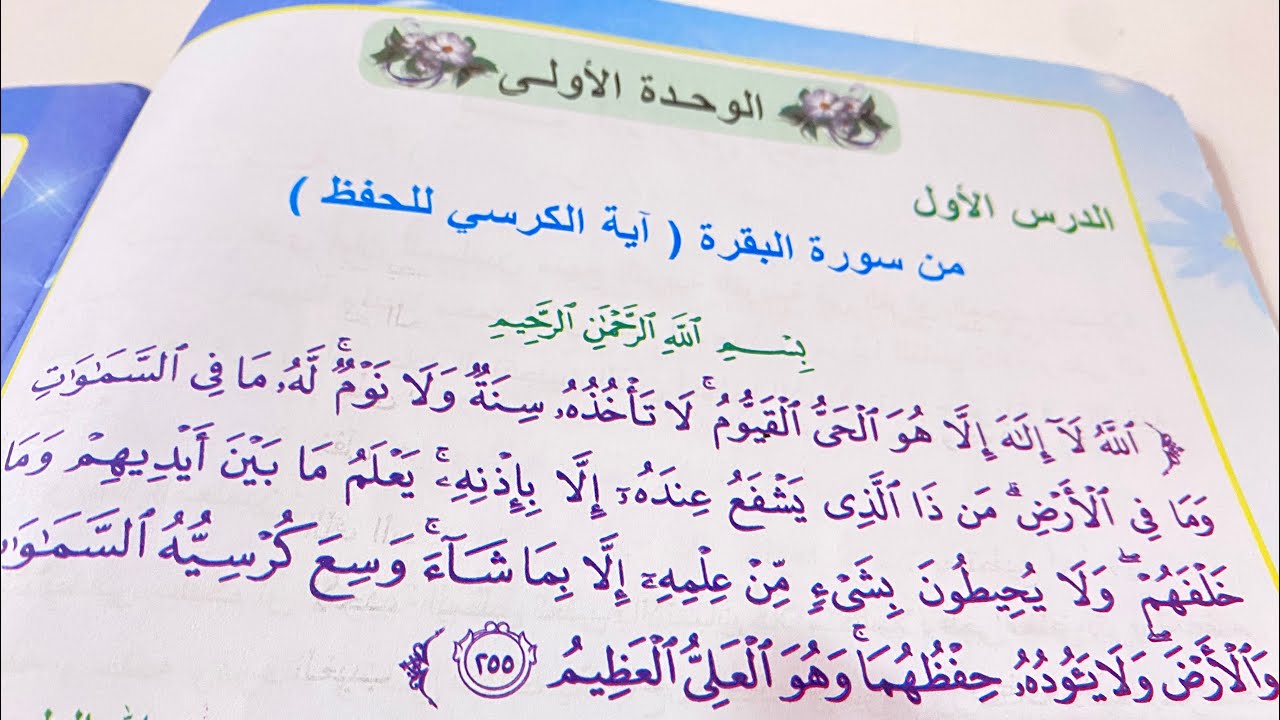 الوحدة الأولى
الدرس الأول
من سورة البقرة ( آية الكرسي للحفظ )
بِسْمِ ٱللَّهِ ٱلرَّحْمَٰنِ ٱلرَّحِيمِ
﴿ ٱللَّهُ لَآ إِلَٰهَ إِلَّا هُوَ ٱلْحَىُّ ٱلْقَيُّومُ ۚ لَا تَأْخُذُهُۥ سِنَةٌ وَلَا نَوْمٌ ۚ لَّهُۥ مَا فِى ٱلسَّمَٰوَٰتِ
وَمَا فِى ٱلْأَرْضِ ۗ مَن ذَا ٱلَّذِى يَشْفَعُ عِندَهُۥٓ إِلَّا بِإِذْنِهِۦ ۚ يَعْلَمُ مَا بَيْنَ أَيْدِيهِمْ وَمَا
خَلْفَهُمْ ۖ وَلَا يُحِيطُونَ بِشَىْءٍ مِّنْ عِلْمِهِۦٓ إِلَّا بِمَا شَآءَ ۚ وَسِعَ كُرْسِيُّهُ ٱلسَّمَٰوَٰ
وَٱلْأَرْضَ ۖ وَلَا يَـُٔودُهُۥ حِفْظُهُمَا ۚ وَهُوَ ٱلْعَلِىُّ ٱلْعَظِيمُ ٢٥٥ ﴾